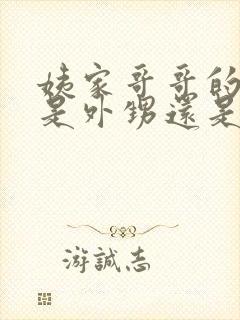 姨家哥哥的
是外甥還是
游誠志